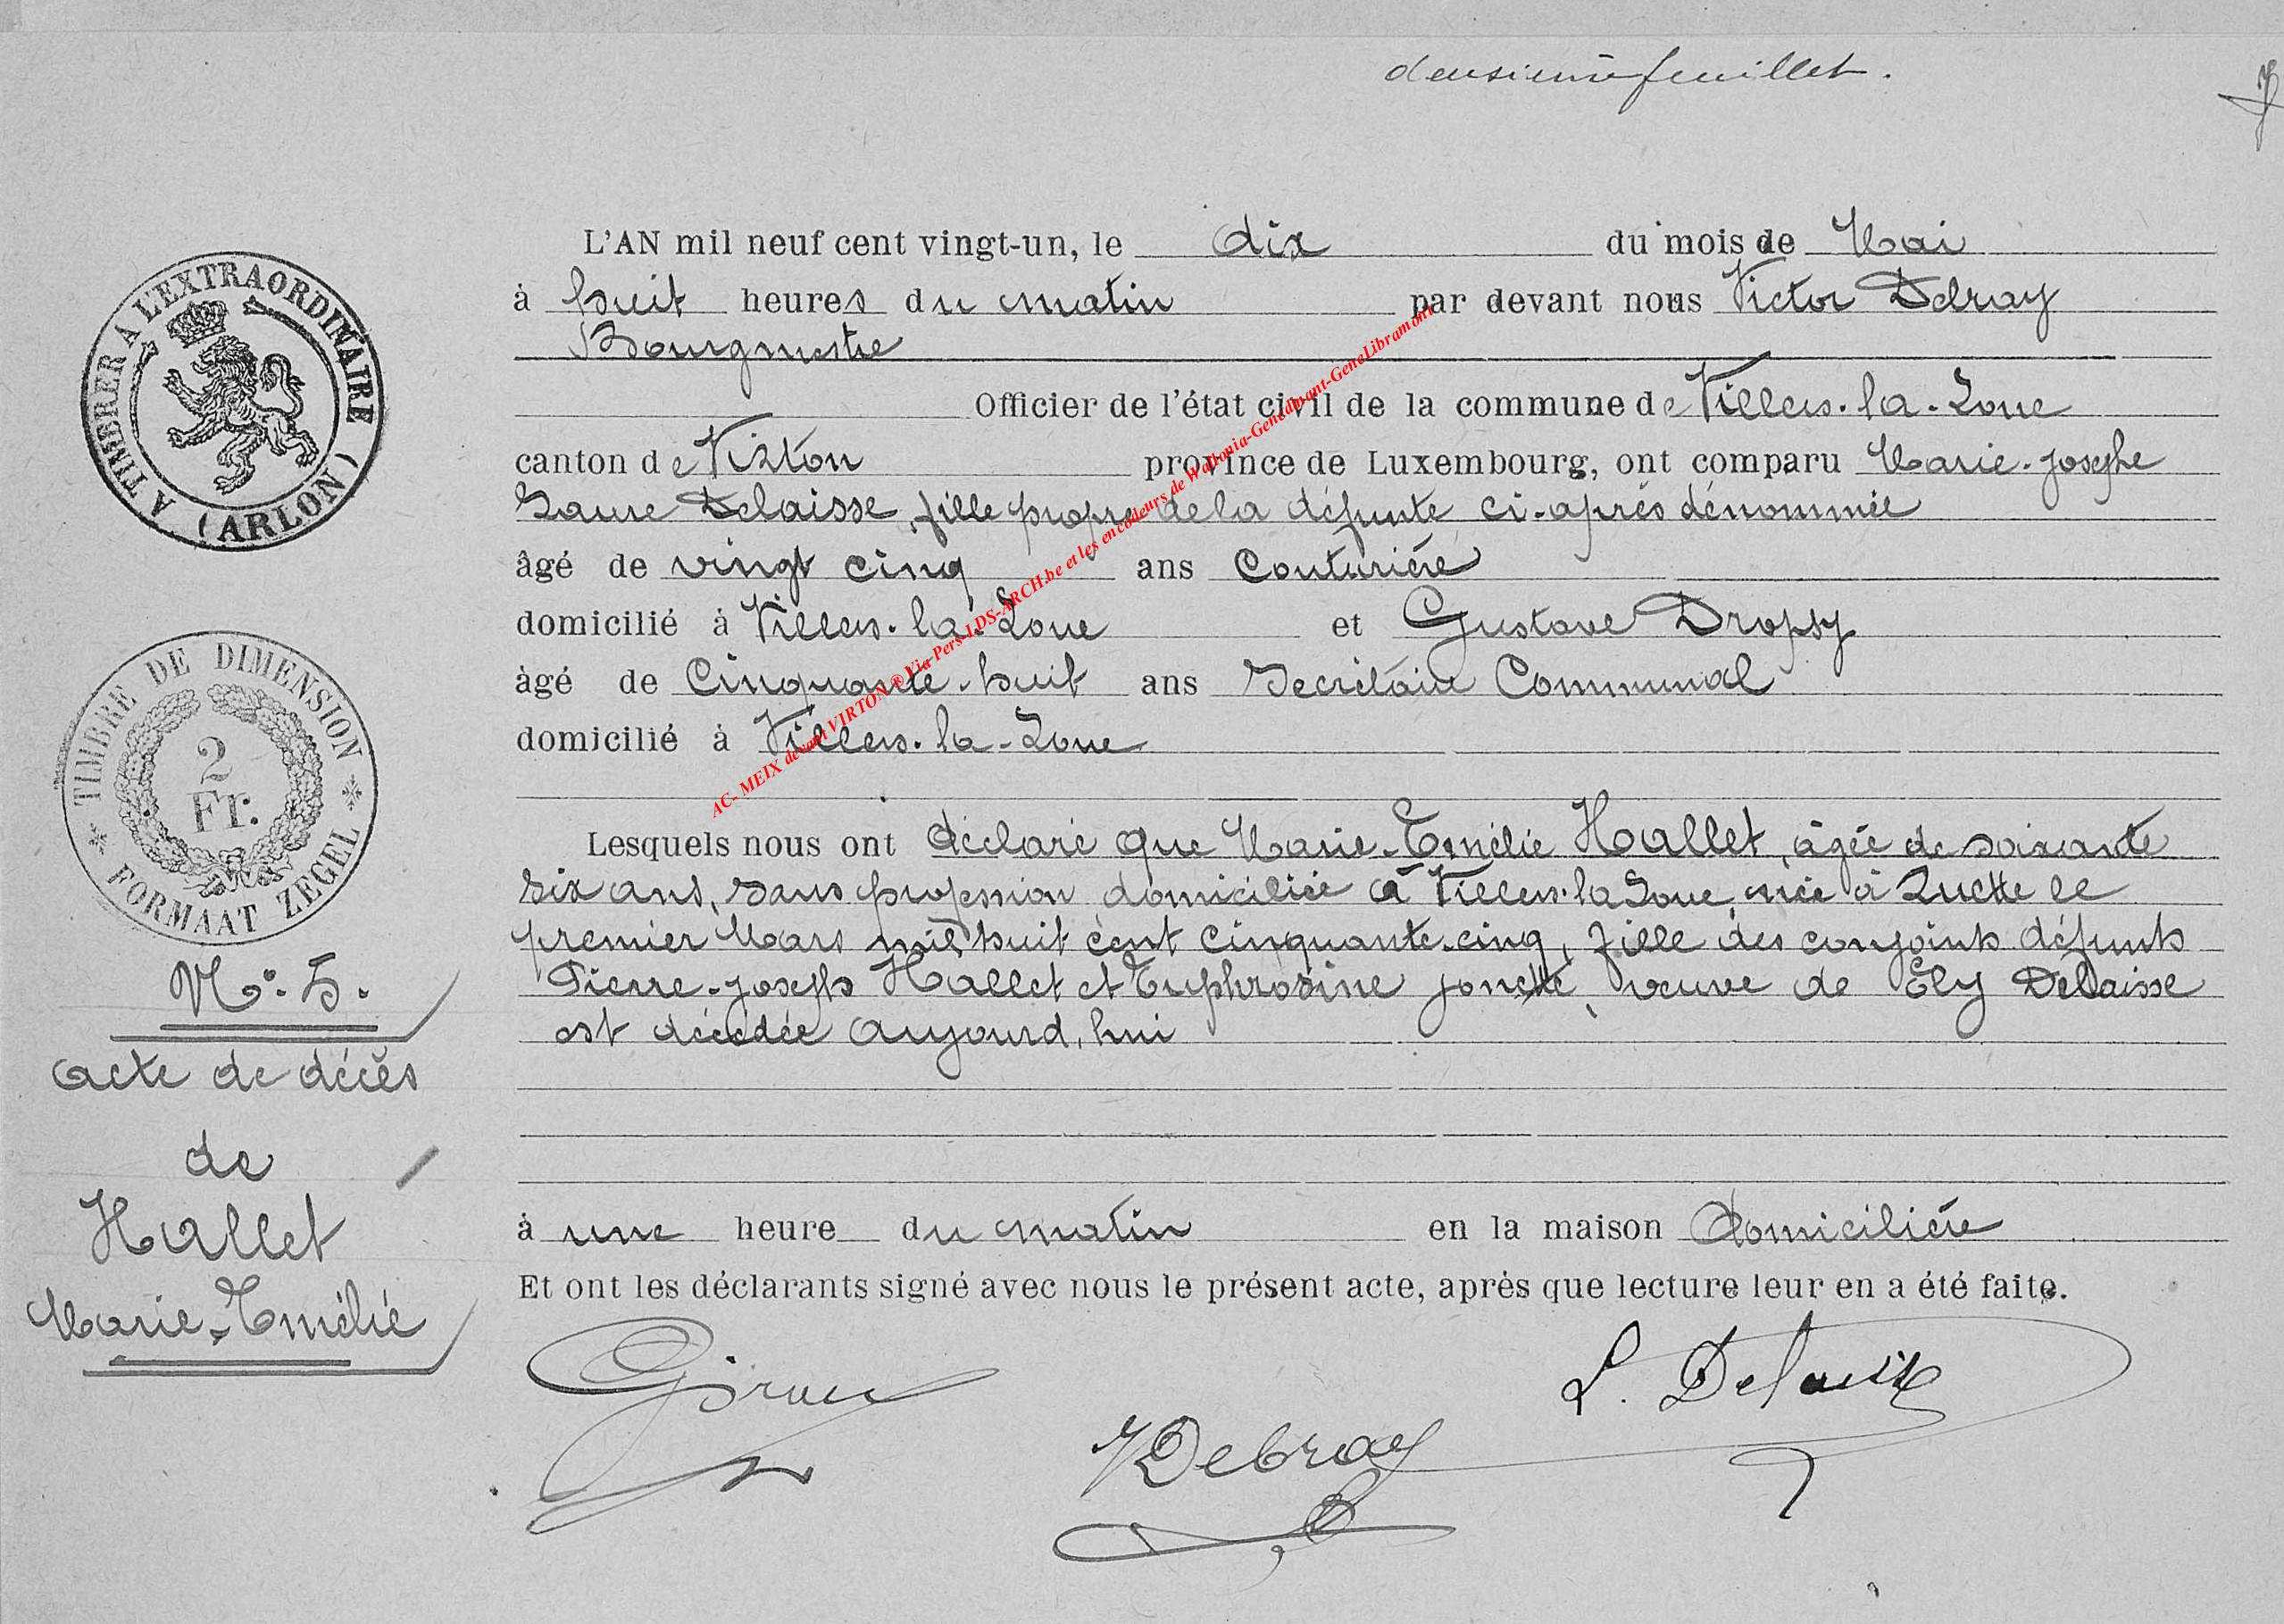 deusième feuillet.
A TIMBRER A L'EXTRAORDINAIRE (ARLON)
TIMBRE DE DIMENSION
2
Fr.
FORMAAT ZEGEL
N.° 5.
acte de décès
de
Hallet
Marie-Emélie
L'AN mil neuf cent vingt-un, le dix du mois de Mai
à huit heures du matin par devant nous Victor Debray
Bourgmestre
Officier de l'état civil de la commune de Villers-la-Loue
canton de Virton province de Luxembourg, ont comparu Marie-Josephe
Laure Delaisse, fille propre de la défunte ci-après dénommée
âgé de vingt cinq ans Couturière
domicilié à Villers-la-Loue et Gustave Dropsy
âgé de Cinquante-huit ans Secrétaire Communal
domicilié à Villers-la-Loue
Lesquels nous ont déclaré que Marie-Emélie Hallet, âgée de soixante
six ans, sans profession domiciliée à Villers-la Loue, née à Luette le
premier Mars mil huit cent cinquante-cinq, fille des conjoints défunts
Pierre-Joseph Hallet et Euphrosine Jonette, veuve de Ely Delaisse
est décédée aujourd'hui
à une heure du matin en la maison domicilière
Et ont les déclarants signé avec nous le présent acte, après que lecture leur en a été faite.
L. Delaisse
VDebray
AC- MEIX devant VIRTON ® Via Pers-LDS-ARCH.be et les encodeurs de Wallonia-Genedinant-GeneLibramont